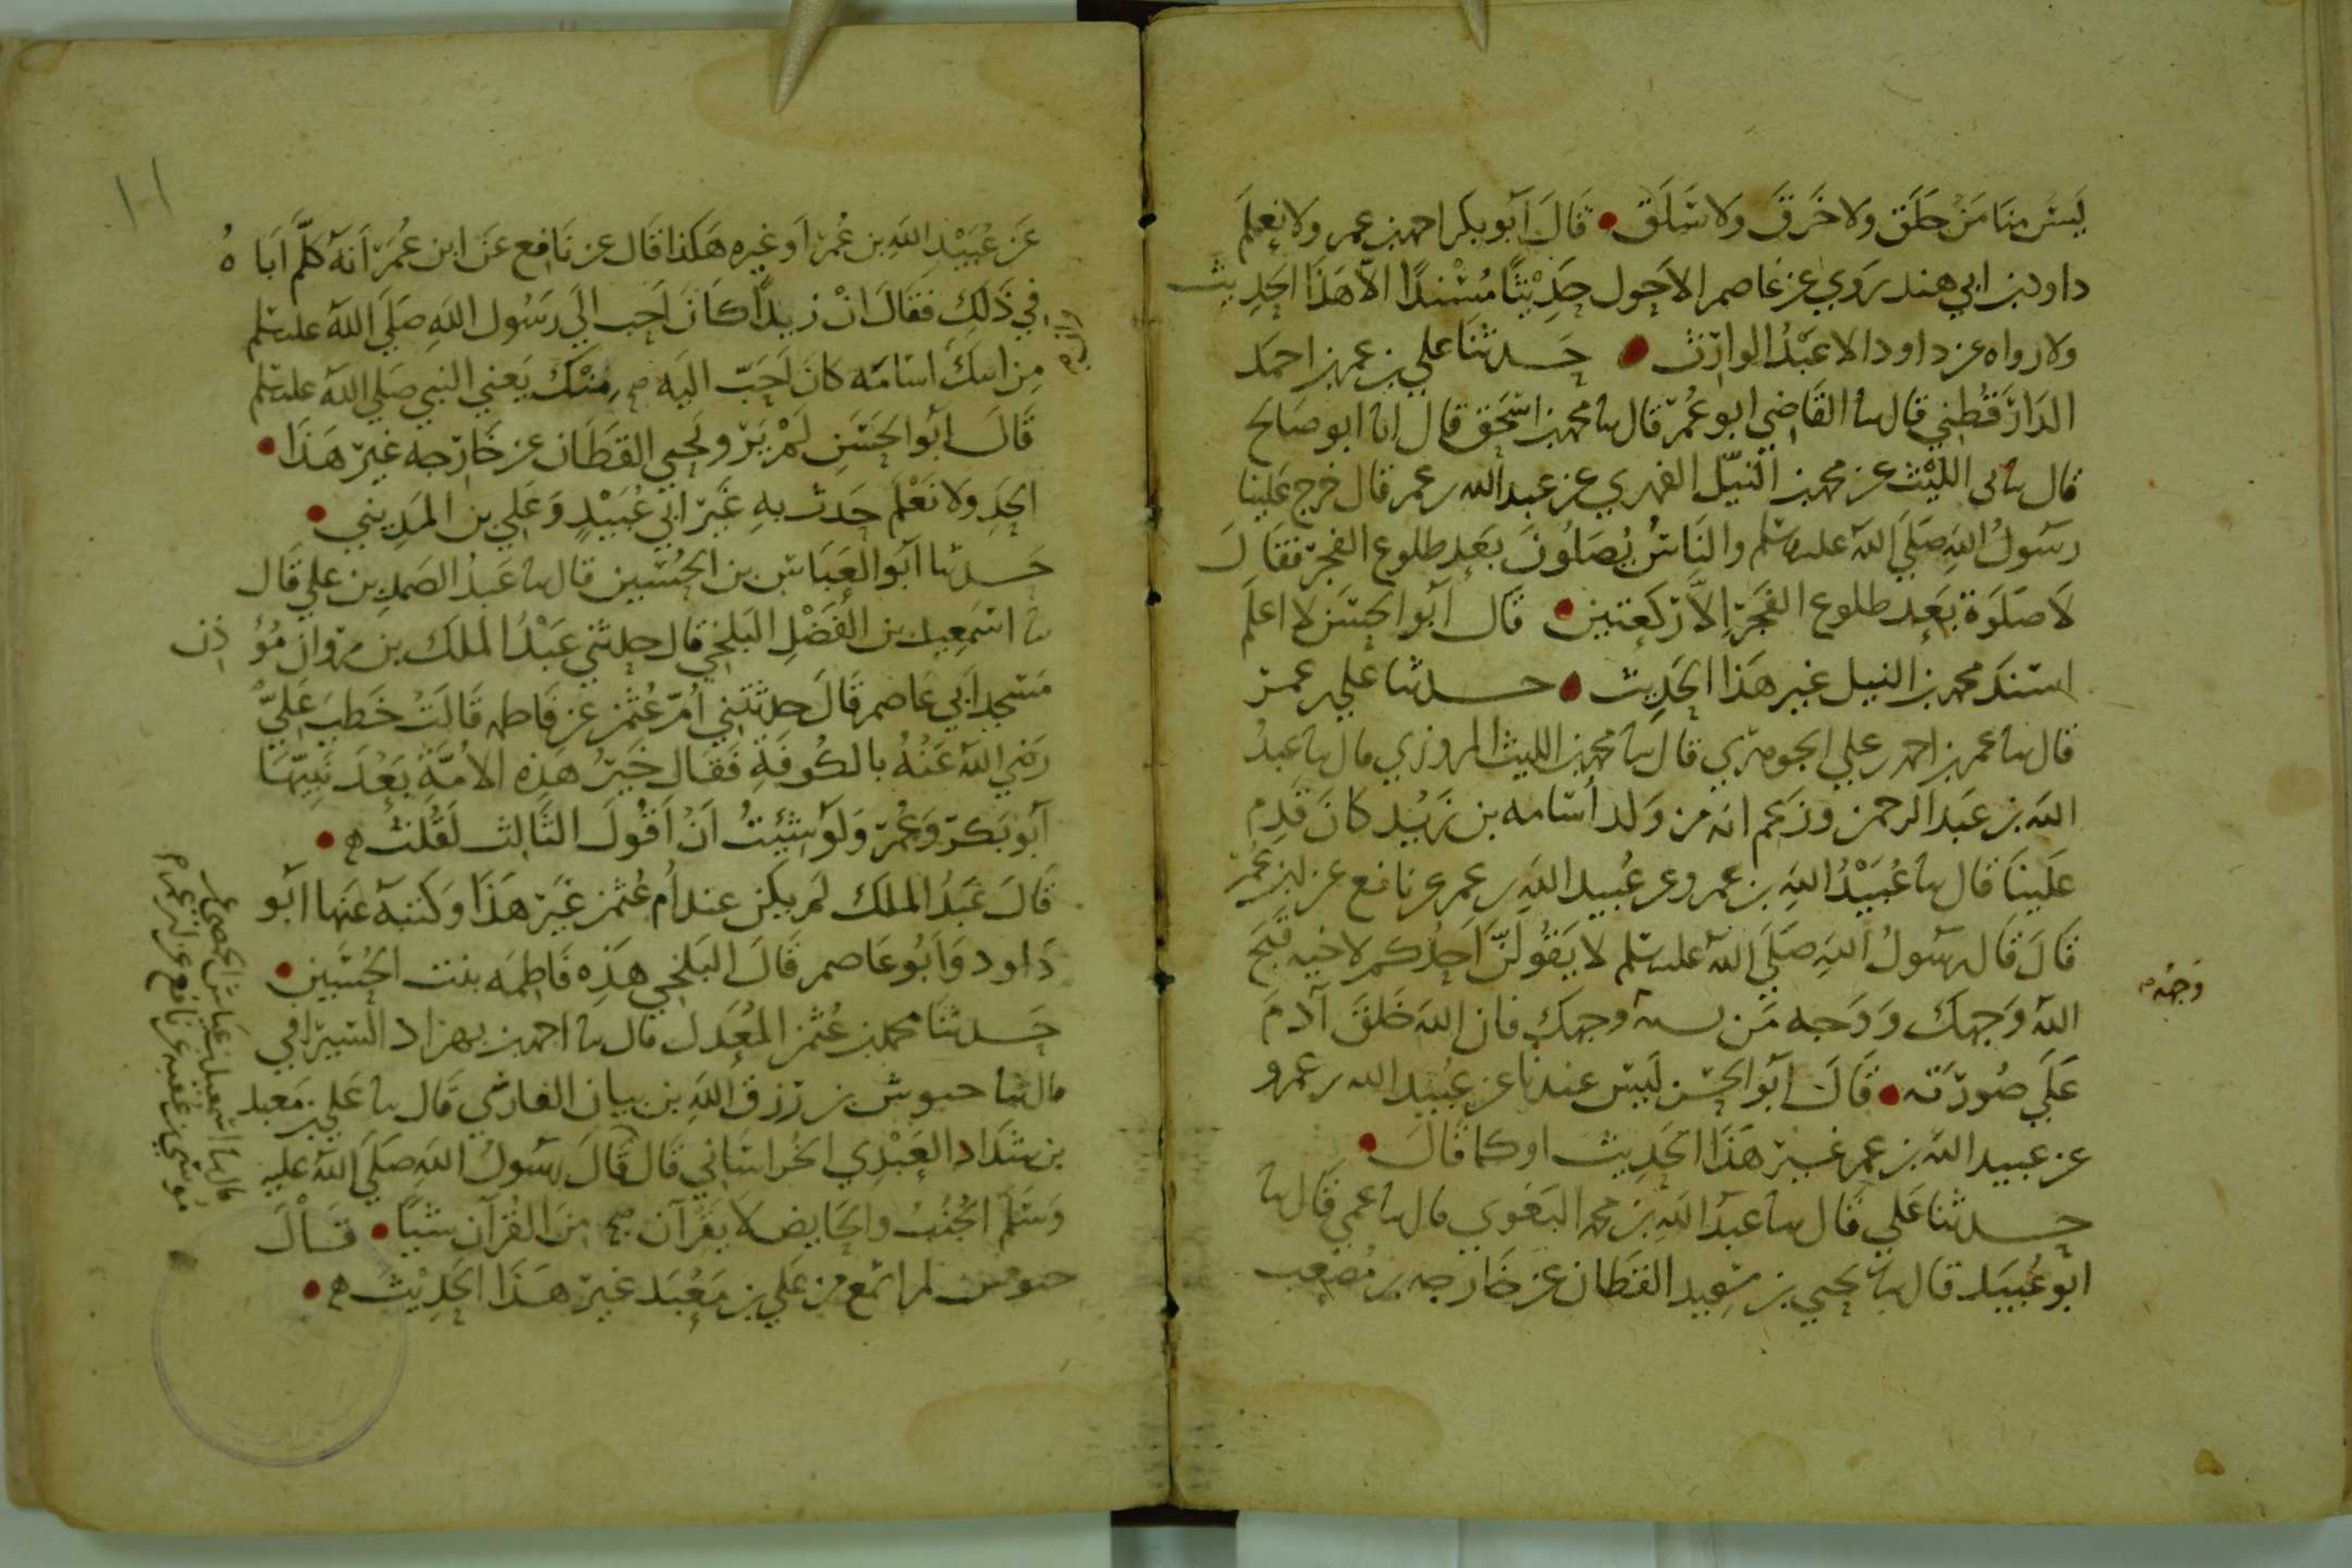 ليس منا من حلق ولا خرق ولا سلق قال أبو بكر احمد بن عمر ولا نعلم
داود بن ابي هند روي عن عاصم الاحول حديثا مسندا الا هذا الحديث
ولا رواه عن داود الا عبد الوارث حدثنا علي بن عمر بن احمد
الدارقطني قال نا القاضي ابو عمر قال نا محمد بن اسحق قال انا ابو صالح
قال نا الليث عن محمد بن النيل الفهري عن عبد الله بن عمر قال خرج علينا
رسول الله صلي الله عليه وسلم والناس يصلون بعد طلوع الفجر فقال
لا صلوة بعد طلوع الفجر الا ركعتين قال ابو الحسن لا اعلم
اسند محمد بن النيل غير هذا الحديث حدثنا علي بن عمر
قال نا عمر بن احمد بن علي الجوهري قال نا محمد بن الليث المروزي قال نا عبد
الله بن عبد الرحمن وزعم انه من ولد أسامه بن زيد كان قدم
علينا قال نا عبيد الله بن عمرو عن عبيد الله بن عمر عن نافع عن ابن عمر
قال قال رسول الله صلي الله عليه وسلم لا يقولن احدكم لاخيه قبح
الله وجهك ووجه من وجهك فان الله خلق آدم
علي صورته قال ابو الحسن ليس عندنا عن عبيد الله بن عمرو
عن عبيد الله بن عمر غير هذا الحديث او كما قال
حدثنا علي قال نا عبد الله بن محمد البغوي قال نا عمي قال نا
ابو عبيد قال نا يحيي بن سعيد القطان عن خارجه بن مصعب
وجه
عن عبيد الله بن عمر او غيره هكذا قال عن نافع عن ابن عمر انه كلم اباه
في ذلك فقال ان زيدا كان احب الي رسول الله صلي الله عليه وسلم
من اسامه كان احب اليه منك يعني النبي صلي الله عليه وسلم
قال ابو الحسن لم يرو يحيي القطان عن خارجه غير هذا
الحد ولا نعلم حدث به غير ابي عبيد وعلي بن المديني
حدثنا ابو العباس بن الحسين قال نا عبد الصمد بن علي قال
نا اسمعيل بن الفضل البلخي قال حدثني عبد الملك بن مروان مؤذن
مسجد ابي عاصم قال حدثتني ام عثمن عن فاطمه قالت خطب علي
رضي الله عنه بالكوفة فقال خير هذه الامة بعد نبيها
ابو بكر وعمر ولو شئت ان اقول الثالث لقلت
قال عبد الملك لم يكن عند ام عثمن غير هذا وكتبه عنها ابو
داود وابو عاصم قال البلخي هذه فاطمه بنت الحسين
حدثنا محمد بن عثمن المعدل قال نا احمد بن بهزاد السيرافي
قال نا حبوش بن رزق الله بن بيان الفارسي قال نا علي بن معبد
بن شداد العبدي الخراساني قال قال رسول الله صلي الله عليه
وسلم الجنب والحايض لا يقرآن من القرآن شيئا قال
حبوش لم اسمع من علي بن معبد غير هذا الحديث
قال نا اسمعيل بن عياش الحمصي عن
موسي بن عقبه عن نافع عن ابن عمر